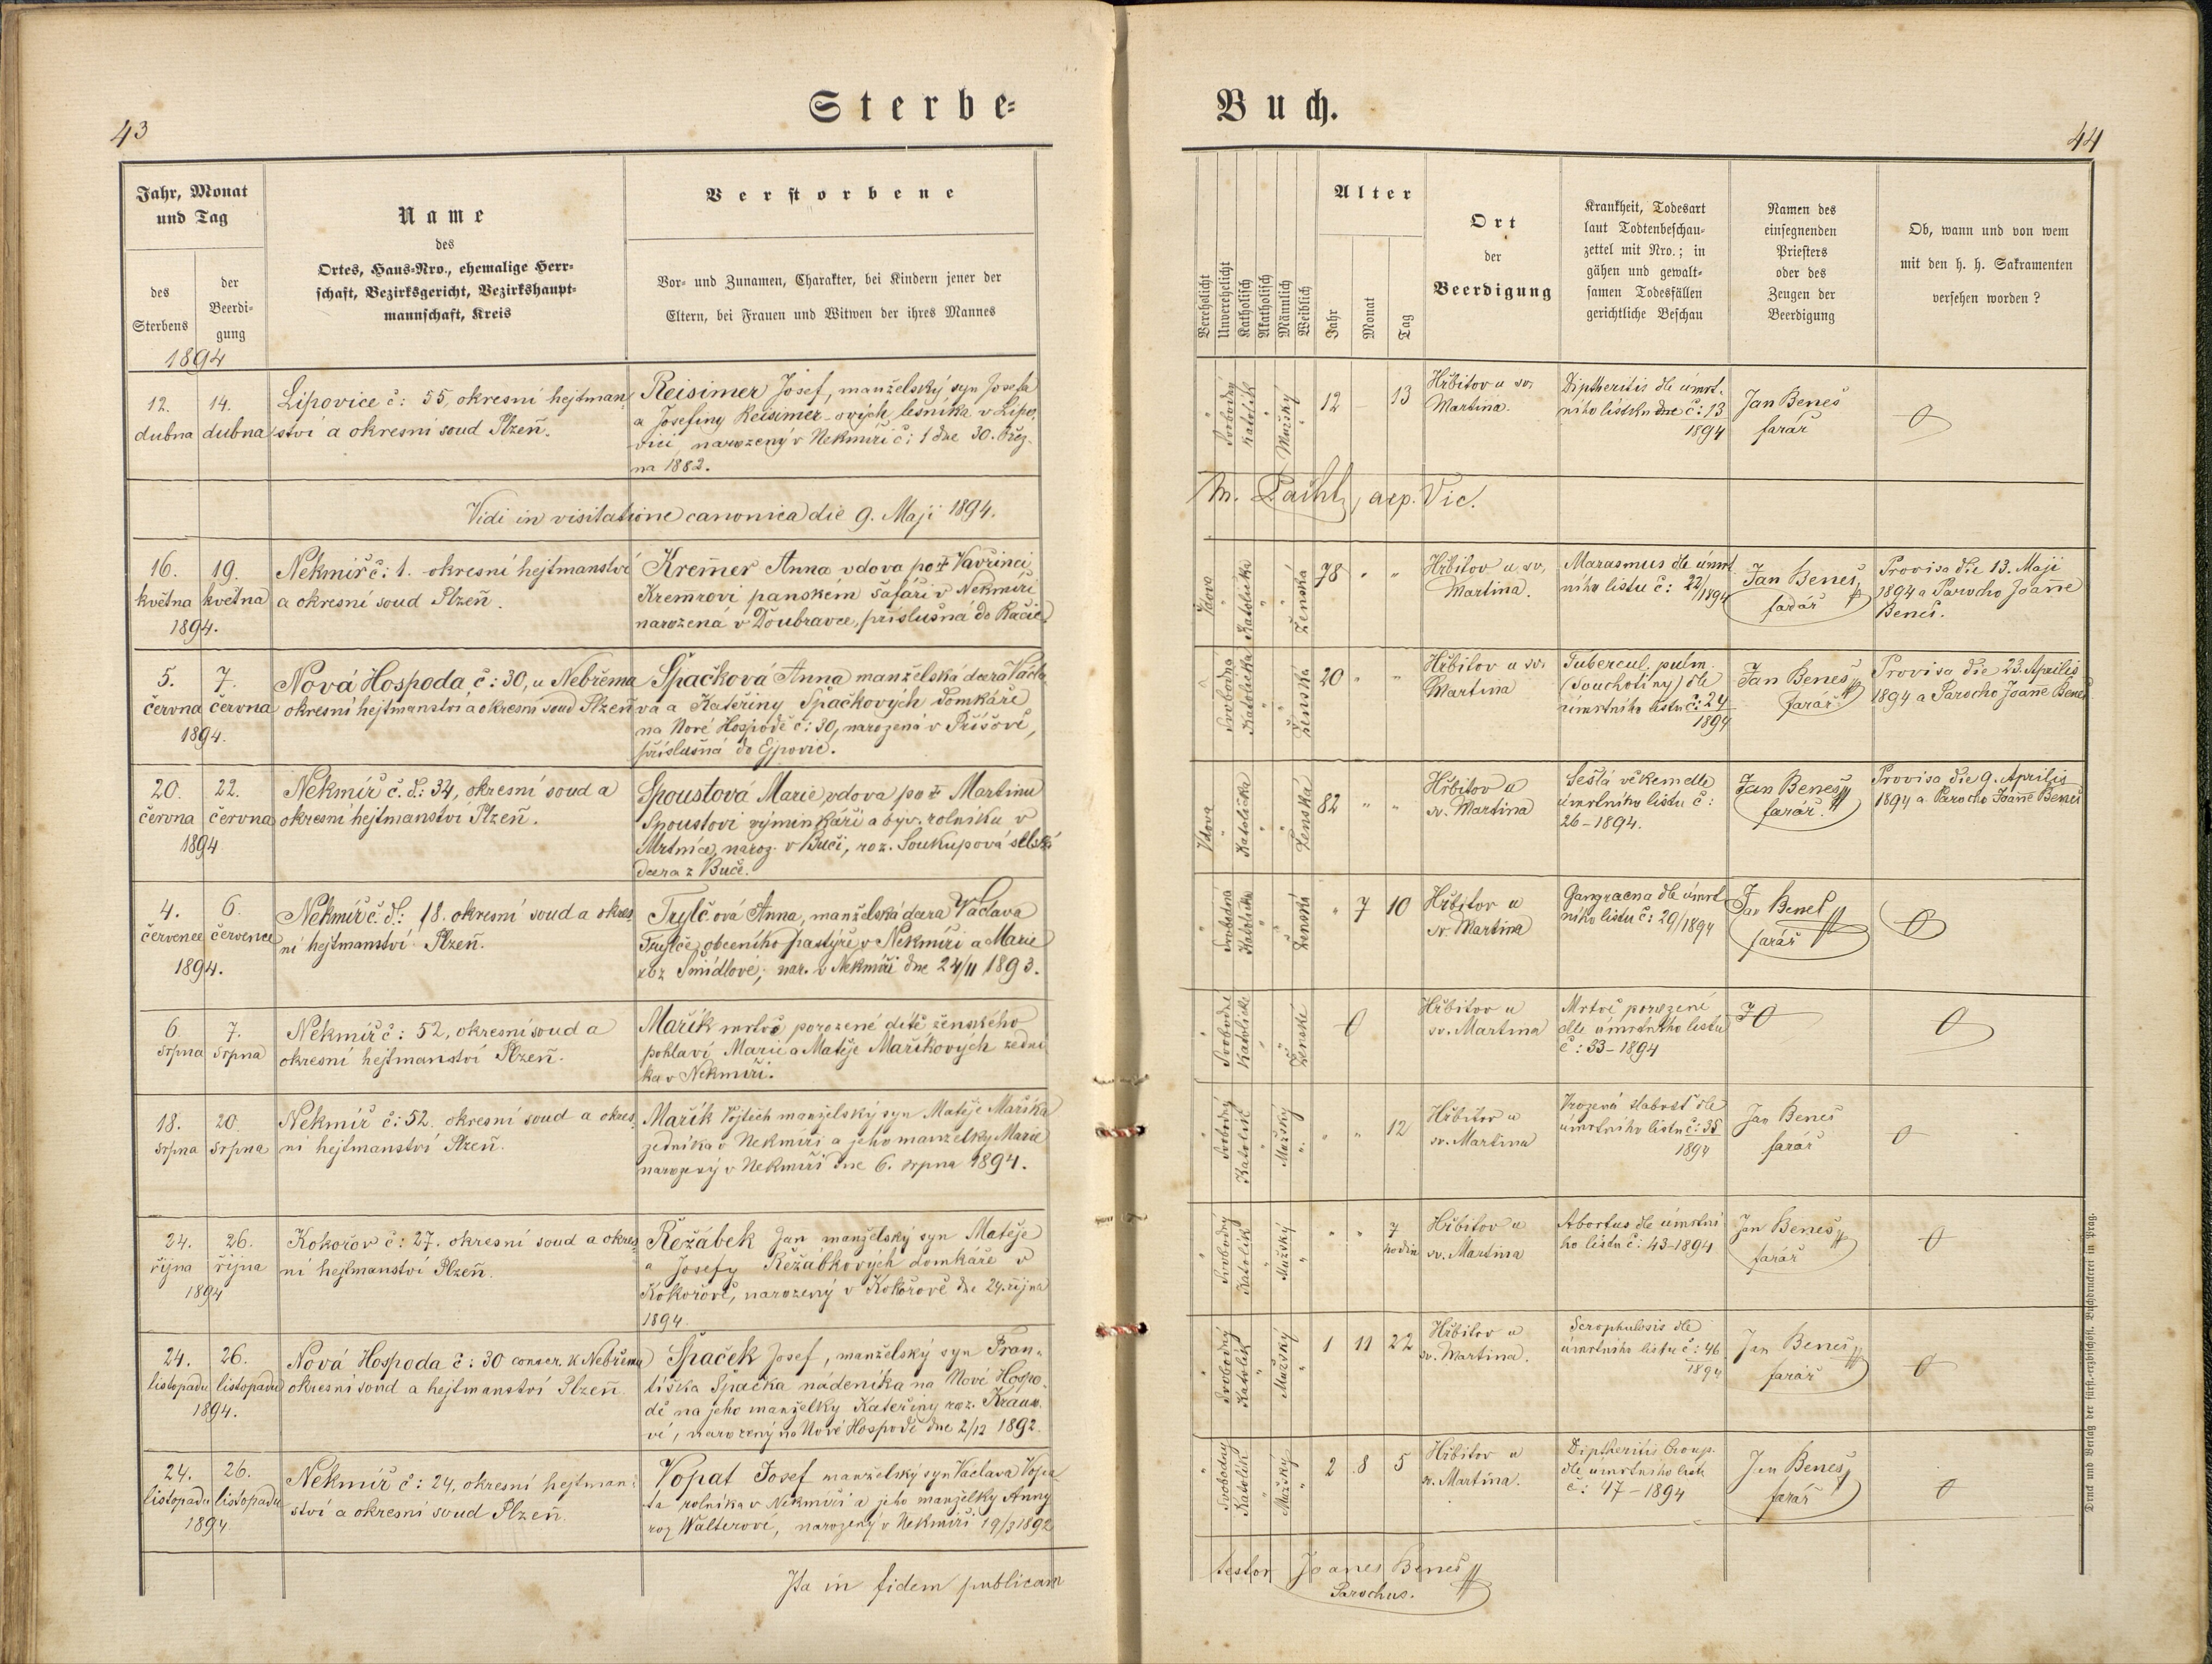 43
Sterbe-
Jahr, Monat
und Tag
des
Sterbens
der
Beerdi-
gung
1894
Name
des
Ortes, Haus-Nro., ehemalige Herr-
schaft, Bezirksgericht, Bezirkshaupt-
mannschaft, Kreis
Verstorbene
Vor- und Zunamen, Charakter, bei Kindern jener der
Eltern, bei Frauen und Witwen der ihres Mannes
12. 14.
dubna dubna
Lipovice č: 55, okresní hejtman-
ství a okresní soud Plzeň.
Reisimer Josef, manželský syn Josefa
a Josefiny Reisimer-ových lesníka v Lipo-
vici, narozený v Nekmíři č: 1 dne 30. Břez-
na 1882.
Vidi in visitatione canonica die 9. Maji 1894.
16. 19.
května května
1894.
Nekmíř č: 1. okresní hejtmanství
a okresní soud Plzeň.
Kremer Anna vdova po ✝ Vavřinci
Kremrovi panském šafáři v Nekmíři
narozená v Doubravce, příslušná do Račic
5. 7.
června června
1894.
Nová Hospoda č: 30, u Nebřema
okresní hejtmanství a okresní soud Plzeň
Špačková Anna manželská dcera Václa-
va a Kateřiny Špačkových domkáře
na Nové Hospodě č: 30, narozená v Příšově,
příslušná do Ejpovic.
20. 22.
června června
1894
Nekmíř č. d.: 34, okresní soud a
okresní hejtmanství Plzeň.
Spoustová Marie, vdova po ✝ Martinu
Spoustovi výminkáři a býv. rolníku v
Mrtníce, naroz. v Buči, roz. Soukupová selská
dcera z Buče.
4. 6.
července července
1894.
Nekmíř č. d.: 18. okresní soud a okres-
ní hejtmanství Plzeň.
Trylčová Anna, manželská dcera Václava
Trylče, obecního pastýře v Nekmíři a Marie
roz Šmídlové, nar. v Nekmíři dne 24/11 1893.
6 7.
srpna srpna
Nekmíř č: 52, okresní soud a
okresní hejtmanství Plzeň.
Mařík mrtvě porozené dítě ženského
pohlaví Marie a Matěje Maříkových zední-
ka v Nekmíři.
18. 20.
srpna srpna
Nekmíř č: 52. okresní soud a okres-
ní hejtmanství Plzeň.
Mařík Vojtěch manželský syn Matěje Maříka
zedníka v Nekmíři a jeho manželky Marie
narozený v Nekmíři dne 6. srpna 1894.
24. 26.
října října
1894
Kokořov č: 27. okresní soud a okres-
ní hejtmanství Plzeň.
Řežábek Jan manželský syn Matěje
a Josefy Řežábkových domkáře v
Kokořově, narozený v Kokořově dne 24. října
1894.
24. 26.
listopadu listopadu
1894.
Nová Hospoda č: 30 conscr. k Nebřemu
okresní soud a hejtmanství Plzeň.
Špaček Josef, manželský syn Fran-
tiška Špačka nádeníka na Nové Hospo-
dě na jeho manželky Kateřiny roz.
narozený na Nové Hospodě dne 2/12 1892.
24. 26.
listopadu listopadu
1894
Nekmíř č: 24, okresní hejtman-
ství a okresní soud Plzeň.
Vopat Josef manželský syn Václava Vopa-
ta rolníka v Nekmíři a jeho manželky Anny
roz Walterové, narozený v Nekmíři 19/3 1892
Ita in fidem publicam
Buch.
44
Verehelicht
Unverehelicht
Katholisch
Akatholisch
Männlich
Weiblich
Alter
Jahr
Monat
Tag
Ort
der
Beerdigung
Krankheit, Todesart
laut Todtenbeschau-
zettel mit Nro.; in
gähen und gewalt-
samen Todesfällen
gerichtliche Beschau
Namen des
einsegnenden
Priesters
oder des
Zeugen der
Beerdigung
Ob, wann und von wem
mit den h. h. Sakramenten
versehen worden?
Svobodný Katolík Mužský 12 13
Hřbitov u sv.
Martina.
Diptheritis dle úmrt-
ního lístku dne č: 13
1894
Jan Beneš
farář
0
aep. Vic.
Vdova Katolička Ženská 78 " "
Hřbitov u sv.
Martina.
Marasmus dle úmrt
ního listu č: 22/1894
Jan Beneš,
farář
Provisa die 13. Maji
1894 a Parocho Joanne
Beneš.
Svobodná Katolička Ženská 20 " "
Hřbitov u sv.
Martina
Tubercul. pulm.
(Souchotiny) dle
úmrtního listu č: 24
1894
Jan Beneš
farář
Provisa die 23. Aprilis
1894 a Parocho Joanne Beneš
Vdova Katolička Ženská 82 " "
Hřbitov u
sv. Martina
Sešlá věkem dle
úmrtního listu č:
26-1894.
Jan Beneš
farář.
Provisa die 9. Aprilis
1894 a Parocho Joanne Beneš
Svobodná Katolička Ženská " 7 10
Hřbitov u
sv. Martina
Gangraena dle úmrt
ního listu č: 29/1894
Jan Beneš
farář
0
Svobodné Katolické Ženské 0
Hřbitov u
sv. Martina
Mrtvě porozené
dle úmrtního listu
č: 33-1894
0
Svobodný Katolík Mužský " " 12
Hřbitov u
sv. Martina
Vrozená slabost dle
úmrtního listu č: 35
1894
Jan Beneš
farář
0
Svobodný Katolík Mužský " " 7
hodin
Hřbitov u
sv. Martina
Abortus dle úmrtní
ho listu č: 43-1894
Jan Beneš
farář
0
Svobodný Katolík Mužský 1 11 22
Hřbitov u
sv. Martina.
Scrophulosis dle
úmrtního listu č: 46
1894
Jan Beneš
farář
0
Svobodný Katolík Mužský 2 8 5
Hřbitov u
sv. Martina.
Diptheritis Croup.
dle úmrtního listu
č: 47-1894
Jan Beneš
farář
0
testor Joanes Beneš
Parochus.
Druck und Verlag der fürst.-erzbischöfl. Buchdruckerei in Prag.